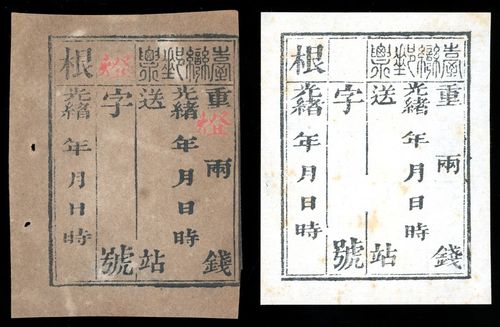 臺灣郵票
重兩錢
光緒年月日時
送站
字號
根
光緒年月日時
臺灣郵票
重兩錢
光緒年月日時
送站
字號
根
光緒年月日時